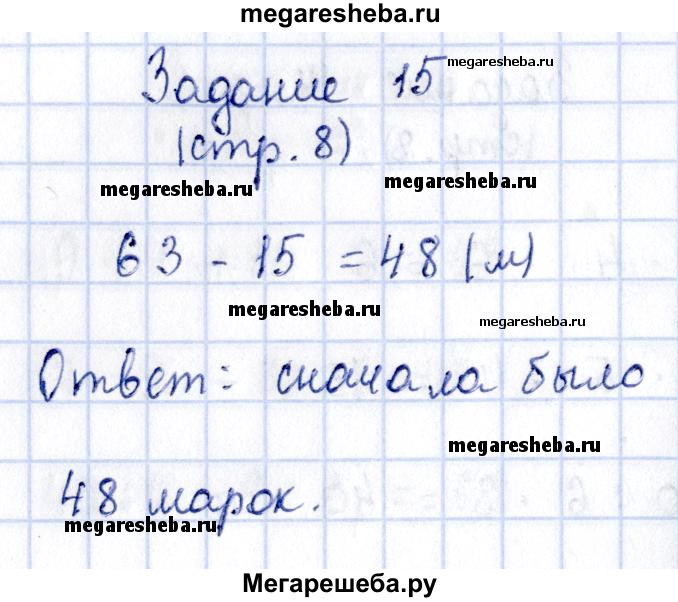 megaresheba.ru
Задание 15
megaresheba.ru
(стр. 8)
megaresheba.ru
megaresheba.ru
63 - 15 = 48 (м)
megaresheba.ru
megaresheba.ru
Ответ: сначала было
megaresheba.ru
48 марок.
megaresheba.ru
Мегарешеба.ру